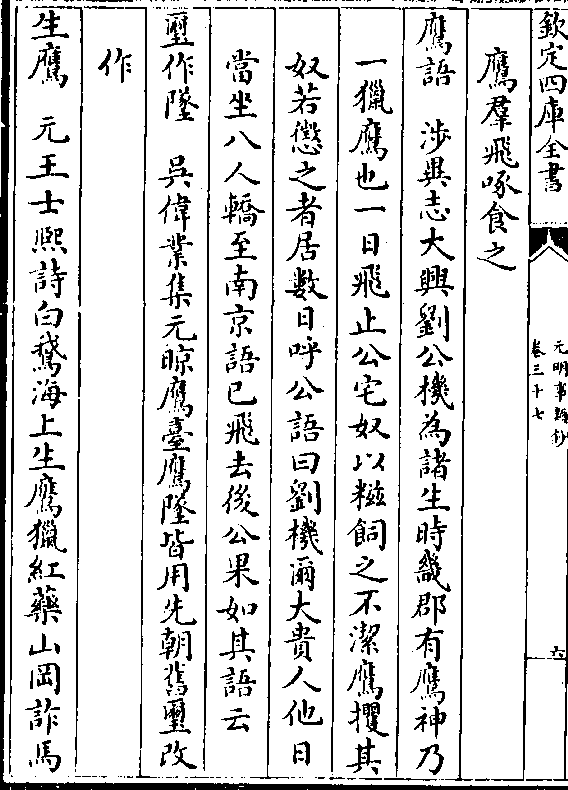 欽定四庫全書
元明事類鈔
卷三十七
六
鷹羣飛啄食之
鷹語　涉異志大興劉公機為諸生時畿郡有鷹神乃
一獵鷹也一日飛止公宅奴以糍飼之不潔鷹攫其
奴若懲之者居數日呼公語曰劉機爾大貴人他日
當坐八人轎至南京語已飛去後公果如其語云
壐作墜　吳偉業集元晾鷹臺鷹墜皆用先朝舊壐改
作
生鷹　元王士熙詩白鵞海上生鷹獵紅藥山岡詐馬